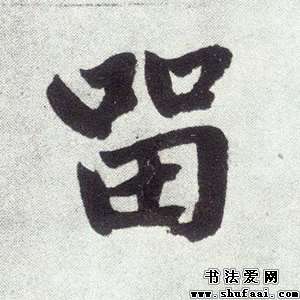 㽞
书法爱网
www.shufaai.com